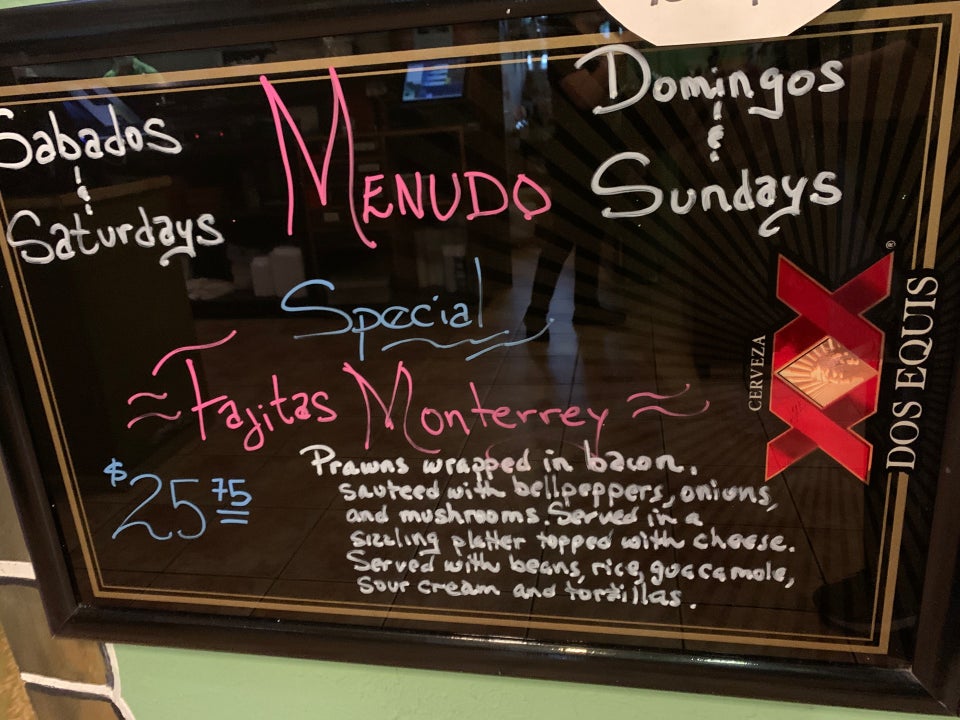 Sabados
&
Saturdays
MENUDO
Domingos
&
Sundays
Special
~ Fajitas Monterrey ~
$25 75
Prawns wrapped in bacon,
sauteed with bellpeppers, onions,
and mushrooms. Served in a
sizzling platter topped with cheese.
Served with beans, rice, guacamole,
sour cream and tortillas.
CERVEZA
XX
DOS EQUIS
®